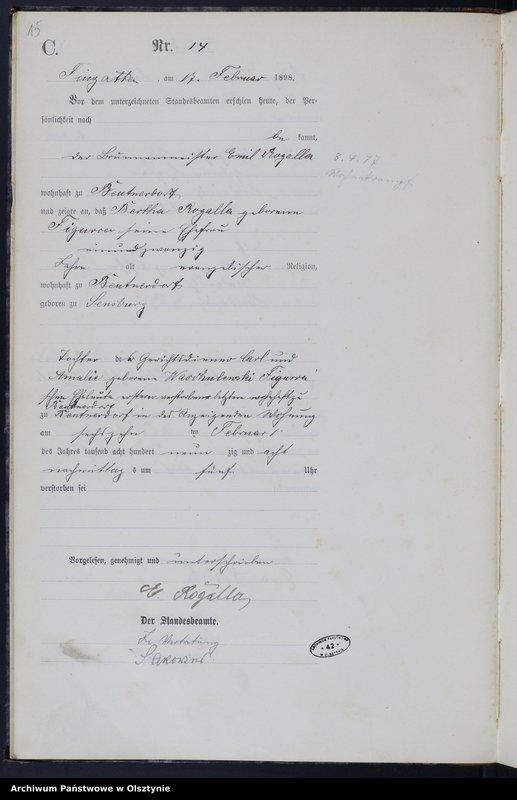 15
C.
Nr. 14
am 17. Februar 1898.
Vor dem unterzeichneten Standesbeamten erschien heute, der Per-
sönlichkeit nach
be kannt,
der Brunnenmeister Emil Rogalla
8. 4. 77
wohnhaft zu Beutnerdorf
und zeigte an, daß Bertha Rogalla geborene
Figurra seine Ehefrau
einundzwanzig
Jahre alt evangelischer Religion,
wohnhaft zu Beutnerdorf
geboren zu Sensburg
Tochter des Gerichtsdieners Carl und
Amalie geborene Figurra
schen Eheleute ersterer verstorben letztere wohnhaft zu
Beutnerdorf
zu Beutnerdorf in des Anzeigenden Wohnung
am sechszehn ten Februar
des Jahres tausend acht hundert neun zig und acht
nachmittag s um fünf Uhr
verstorben sei
Vorgelesen, genehmigt und unterschrieben
E. Rogalla
Der Standesbeamte.
In Vertretung
42
Archiwum Państwowe w Olsztynie